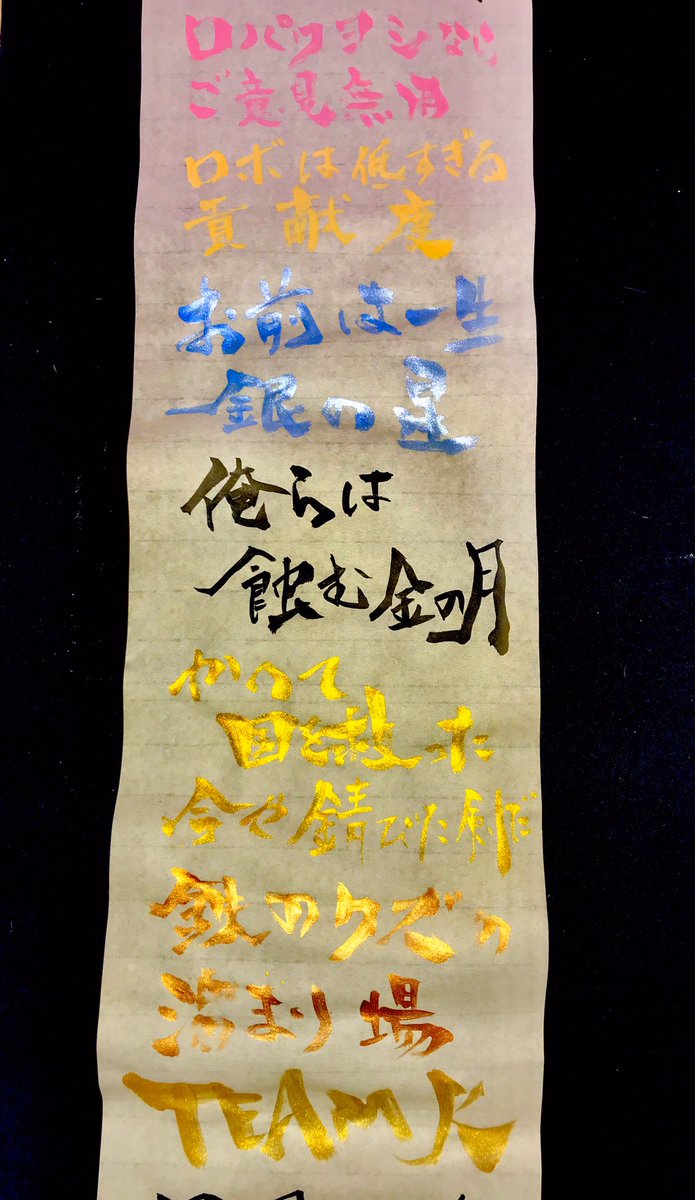 口パクヨシなら
ご意見無用
ロボは低すぎる
貢献度
お前は一生
銀の星
俺らは
蝕む金の月
かつて
国を救った
今や錆びた剣だ
鉄のクズの
溜まり場
TEAM K